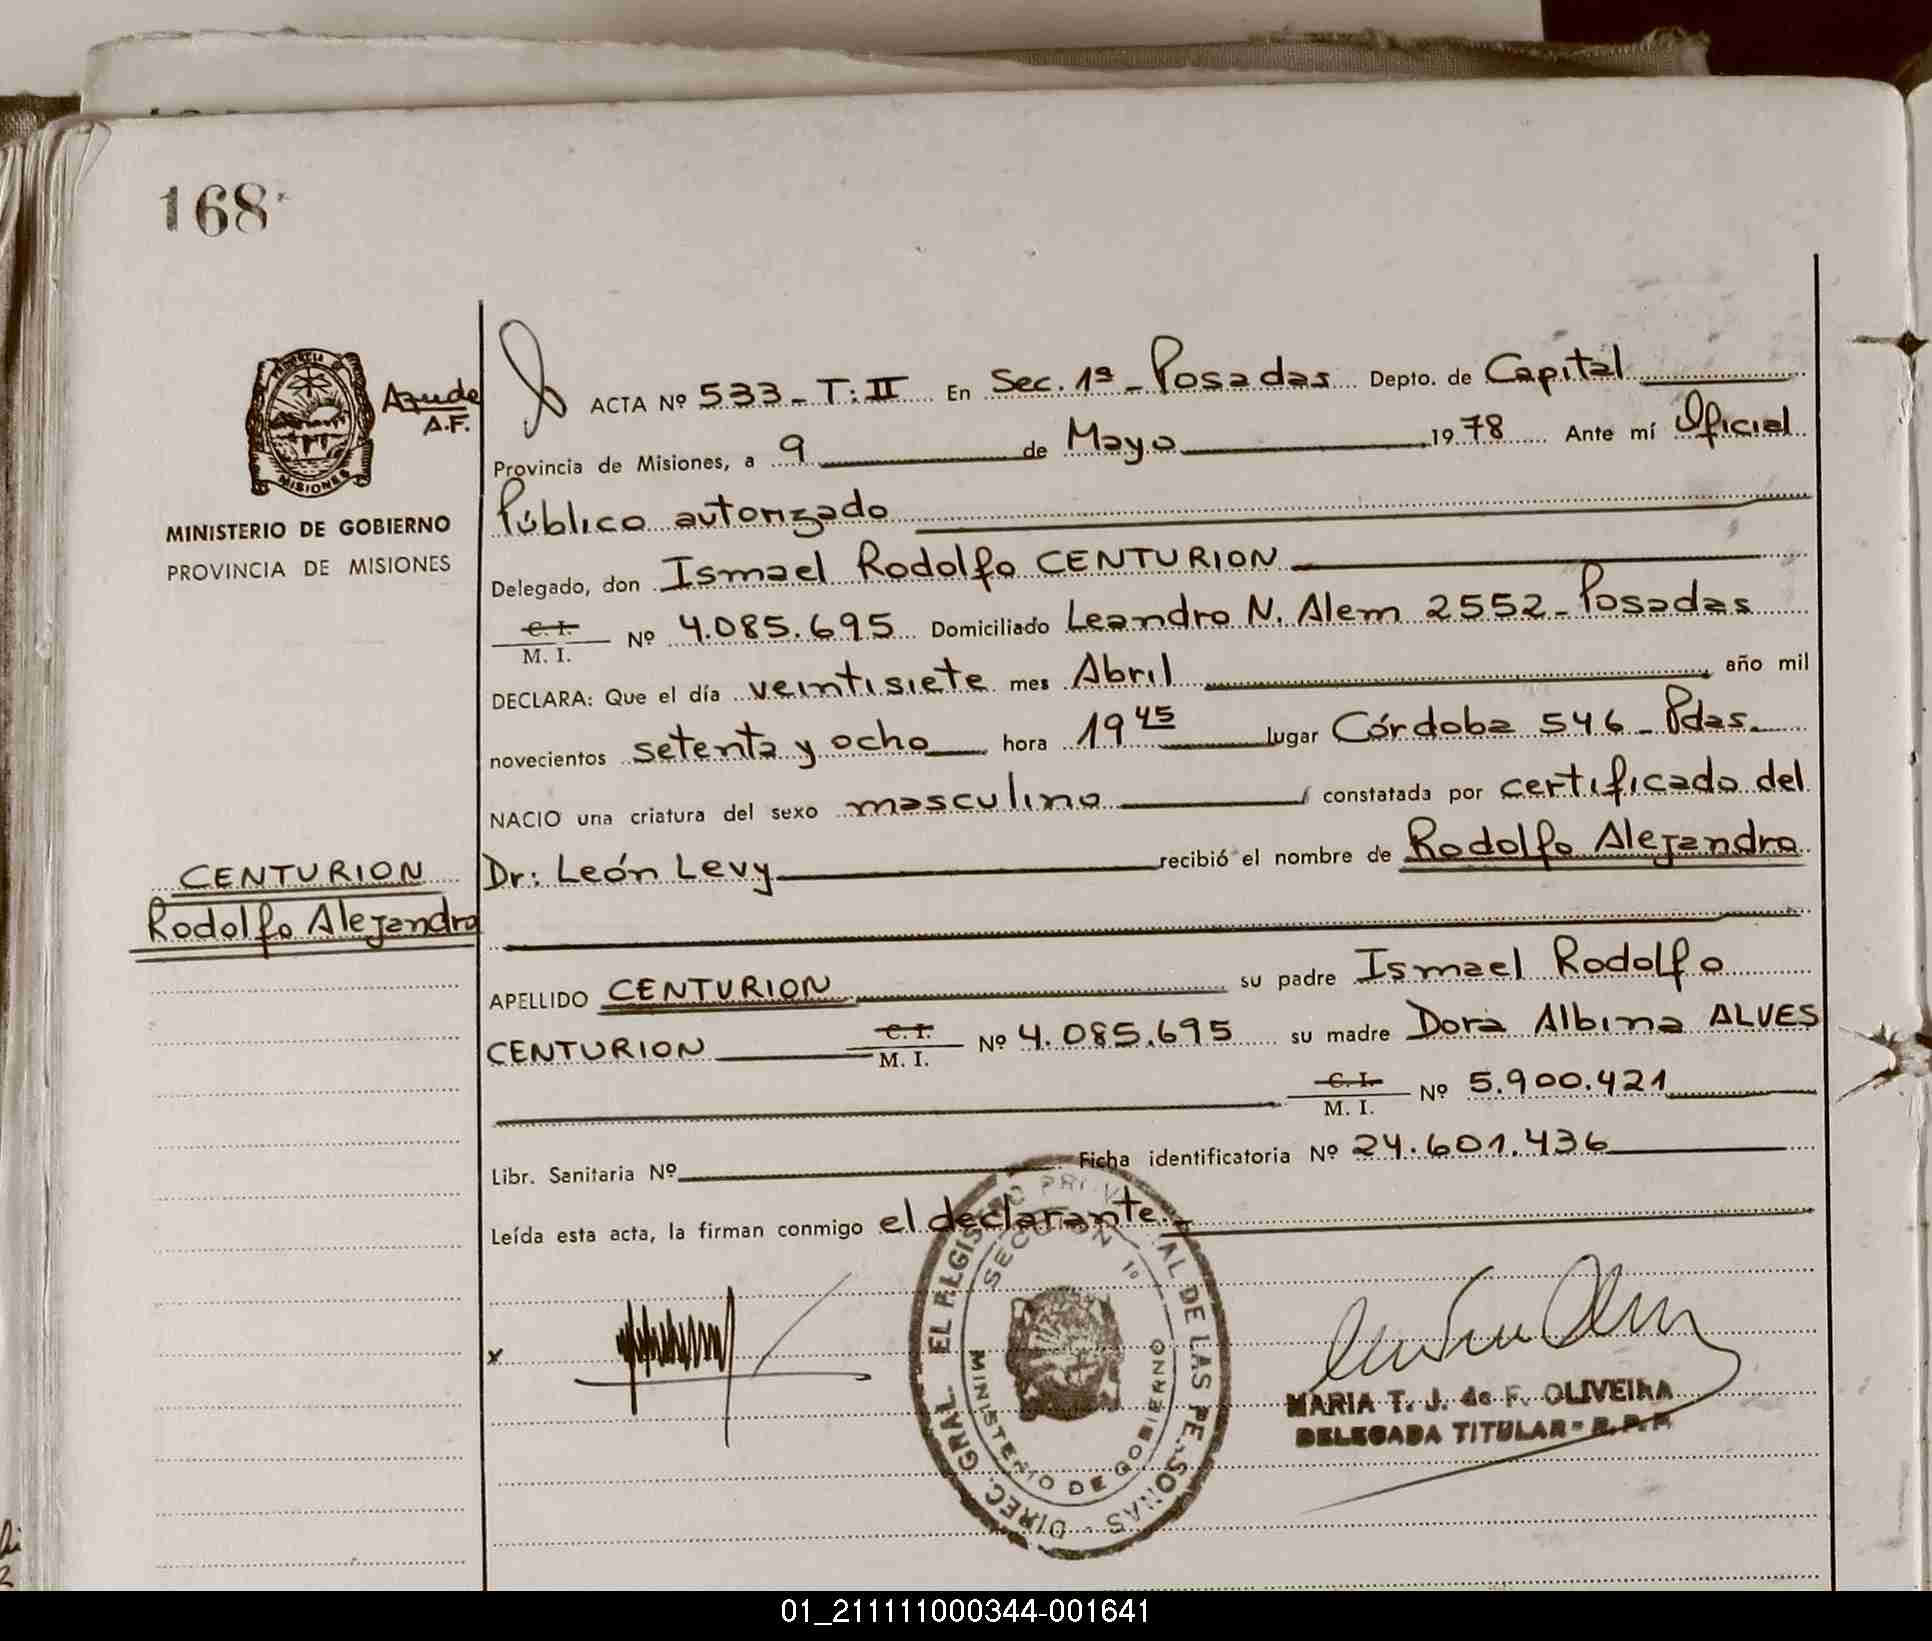 168
Azude
A.F.
PROVINCIA DE
MISIONES
MINISTERIO DE GOBIERNO
PROVINCIA DE MISIONES
CENTURION
Rodolfo Alejandro
ACTA Nº 533 - T: II En Sec. 1ª - Posadas Depto. de Capital
Provincia de Misiones, a 9 de Mayo 1978 Ante mí Oficial
Público autorizado
Delegado, don Ismael Rodolfo CENTURION
C. I.
M. I. Nº 4.085.695 Domiciliado Leandro N. Alem 2552 - Posadas
DECLARA: Que el día veintisiete mes Abril año mil
novecientos setenta y ocho hora 19 45 lugar Córdoba 546 - Pdas.
NACIO una criatura del sexo masculino constatada por certificado del
Dr: León Levy recibió el nombre de Rodolfo Alejandro
APELLIDO CENTURION su padre Ismael Rodolfo
CENTURION C. I. M. I. Nº 4.085.695 su madre Dora Albina ALVES
C. I.
M. I. Nº 5.900.421
Libr. Sanitaria Nº Ficha identificatoria Nº 24.601.436
Leída esta acta, la firman conmigo el declarante. -
x
DIREC. GRAL. EL REGISTRO PROVINCIAL DE LAS PERSONAS
SECCION 1º
MINISTERIO DE GOBIERNO
MARIA T. J. de F. OLIVEIRA
DELEGADA TITULAR - R.P.P.
01_211111000344-001641